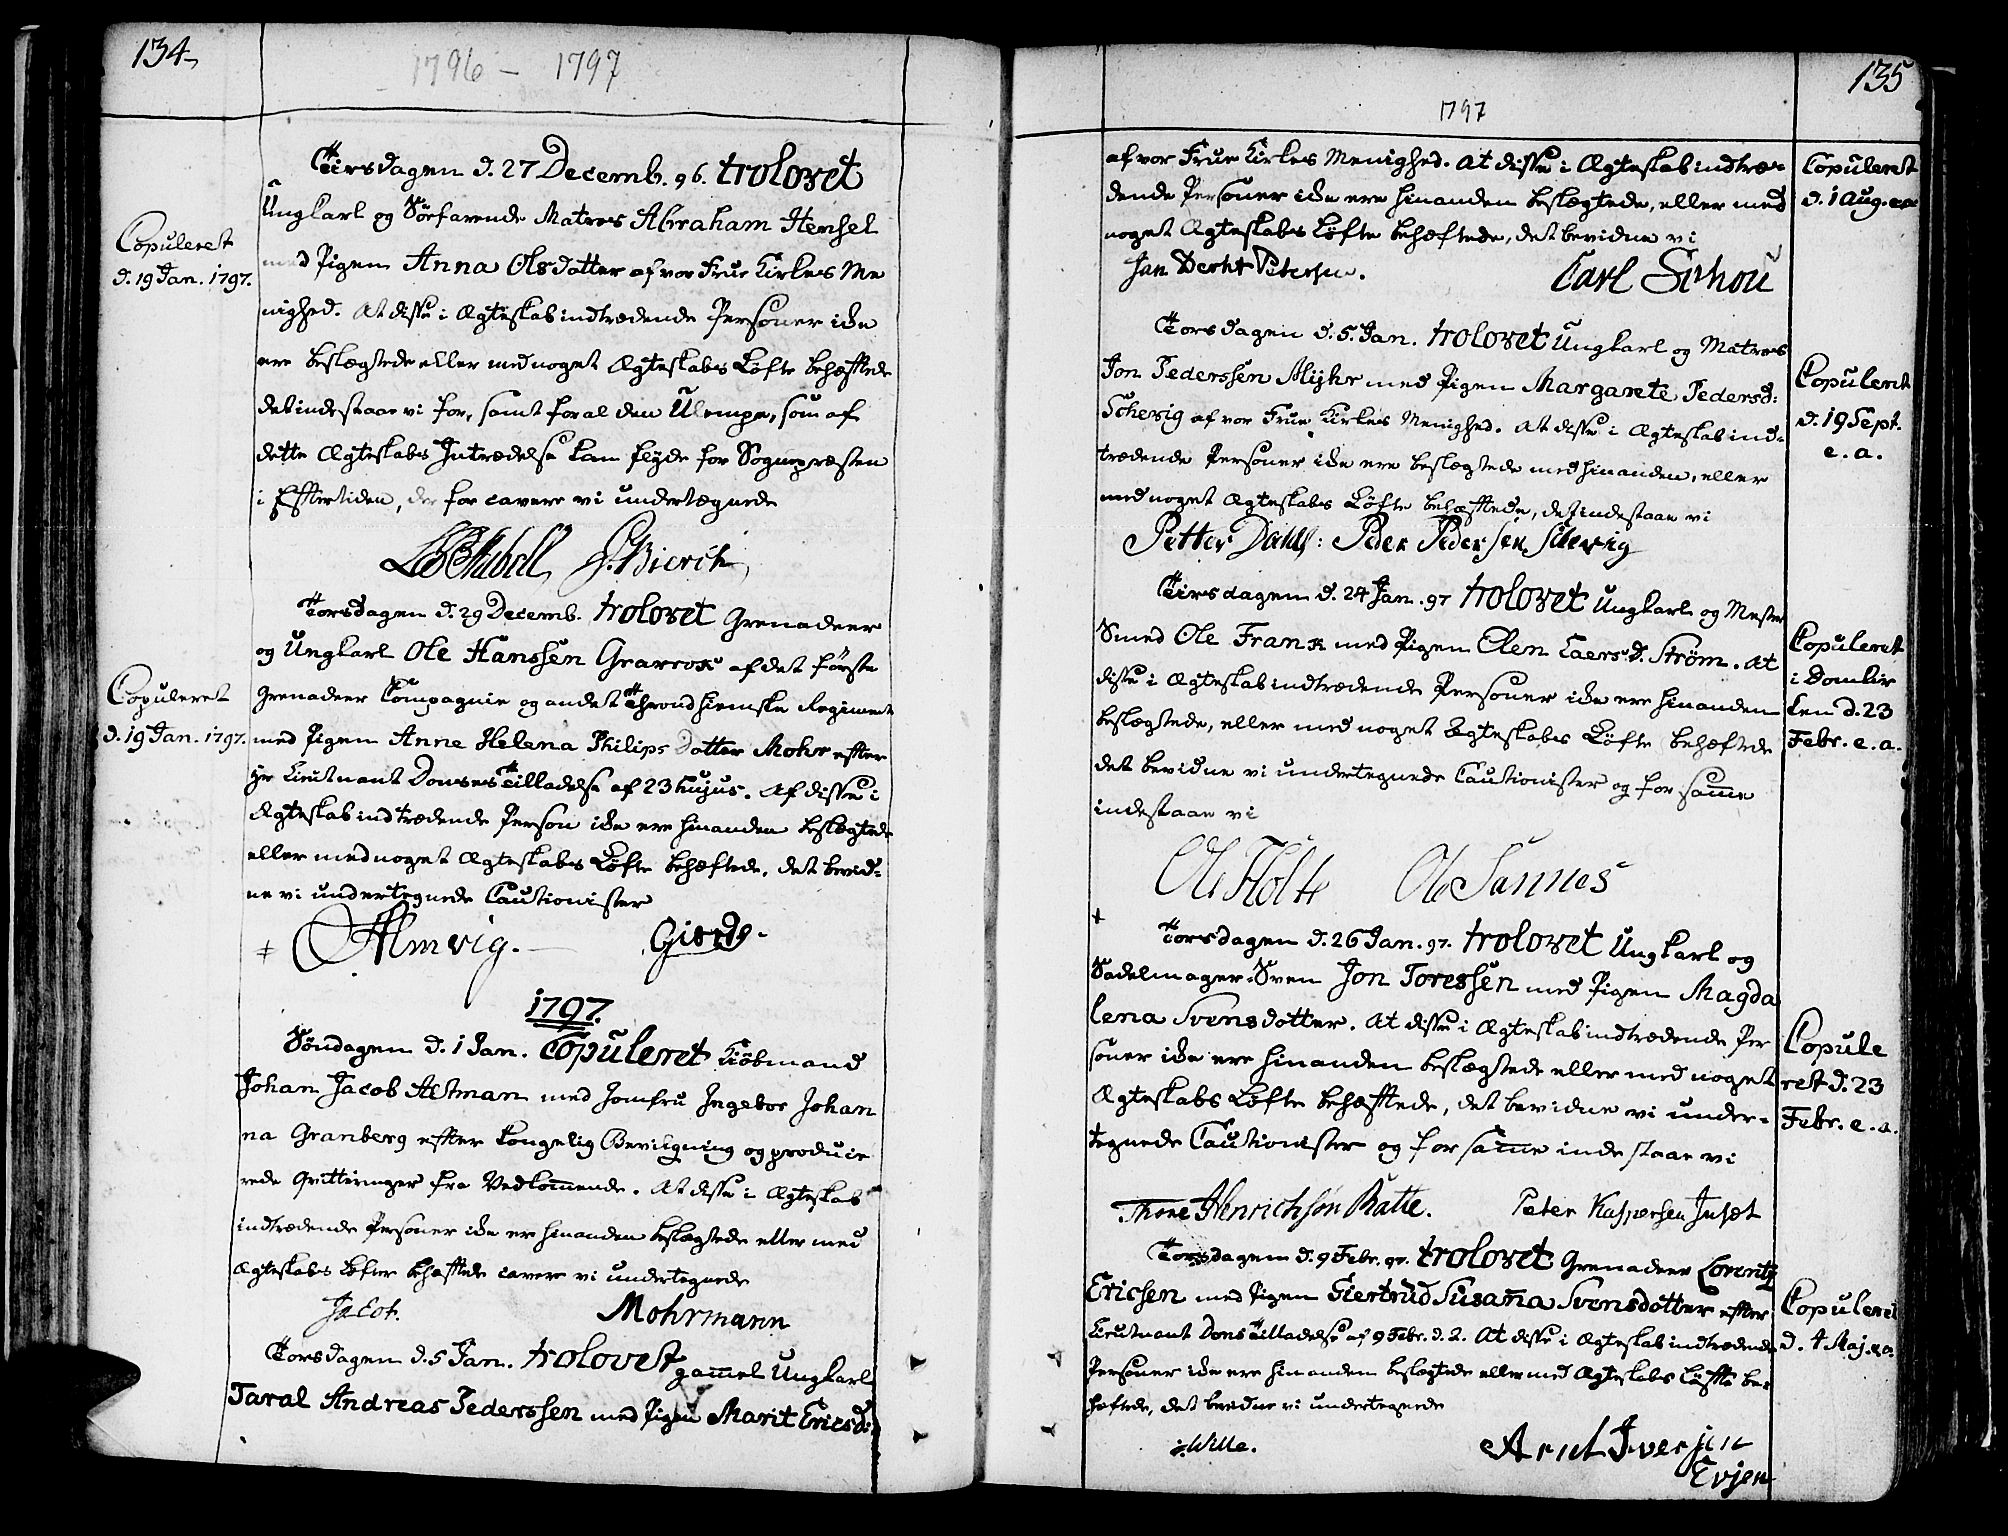 134
1796 – 1797
Tirsdagen d. 27 Decemb. 96. trolovet
Ungkarl og Søefarende Matros Abraham Hensel
med Pigen Anna Olsdatter af vor Frue Kirkes Me
nighed. At disse i Ægteskab indtrædende Personer ikke
ere beslægtede eller med noget Ægteskabs Løfte behæftede
det indestaae vi for, samt for al den Ulempe, som af
dette Ægteskabs Intrædelse kan flyde for Sognepræsten
i Eftertiden, der for cavere vi undertegnede
Copuleret
d. 19 Jan. 1797.
Torsdagen d. 29 Decemb. trolovet Grenadeer
og Ungkarl Ole Hanssen Graxrox af det første
Grenadeer Compagnie og andet Throndhiemske Regiment
med Pigen Anne Helena Philips Datter Mohr efter
Hr Lieutnant Donses Tilladelse af 23 hujus. At disse i
Ægteskab indtrædende Person ikke ere hinanden beslægtede
eller med noget Ægteskabs Løfte behæftede, det bevid-
ne vi undertegnede Cautionister
Almvig.
Copuleret
d. 19 Jan. 1797.
1797.
Søndagen d. 1 Jan. Copuleret Kiøbmand
Johan Jacob Altman med Jomfru Ingebor Johan
na Granberg efter Kongelig Bevilgning og producie
rede Qvitteringer fra Vedkommende. At disse i Ægteskab
indtrædende Personer ikke er hinanden beslægtede eller med
Ægteskabs Løfter behæftede cavere vi undertegnede
Mohrmann
Torsdagen d. 5 Jan. trolovest gammel Ungkarl
Taral Andreas Pederssen med Pigen Marit Ericsd:
135
1797
af vor Frue Kirkes Menighed. At disse i Ægteskab indtræ-
dende Personer ikke ere hinanden beslægtede, eller med
noget Ægteskabs Løfte behæftede, det bevidne vi
Jan Petersen. Carl Schou
Copuleret
d. 1 Aug. e.a.
Torsdagen d. 5. Jan. trolovet Ungkarl og Matros
Jon Pederssen Myhr med Pigen Margarete Pedersd:
Schevig af vor Frue Kirkes Menighed. At disse i Ægteskab ind-
trædende Personer ikke ere beslægtede med hinanden, eller
med noget Ægteskabs Løfte behæftede, det indestaae vi
Petter Dahl: Peder Pedersen Schevig
Copuleret
d. 19 Sept.
e. a.
Tirsdagen d. 24 Jan. 97 trolovet Ungkarl og Mester
Smed Ole Frank med Pigen Elen Laers D. Strøm. At
disse i Ægteskab indtrædende Personer ikke ere hinanden
beslægtede, eller med noget Ægteskabs Løfte behæftede
det bevidne vi undertegnede Cautionister og for samme
indestaae vi
Ole Holte Ole Sannes
Copuleret
i Domkir
ken d. 23
Febr. e. a.
Torsdagen d. 26 Jan. 97. trolovet Ungkarl og
Sadelmager-Sven Jon Toressen med Pigen Magda
lena Svensdotter. At disse i Ægteskab indtrædende Per
soner ikke ere hinanden beslægtede eller med noget
Ægteskabs Løfte behæftede, det bevidne vi under-
tegnede Cautionister og for samme indestaae vi
Thore Henrichsøn Ratte. Peter Kaspersen Inset
Copule
ret d. 23
Febr. e. a.
Torsdagen d. 9 Febr. 97. trolovet Grenadeer Lorentz
Ericsen med Pigen Giertrud Susanna Svensdotter efter
Lieutnant Dons Tilladelse af 9 Febr. d. 2. At disse i Ægteskab indtrædende
Personer ikke ere hinanden beslægtede eller med Ægteskabs Løffte be-
hæftede, det bevidne vi undertegnede
Wille. Arnt Iversen
Evjen
Copuleret
d. 4 Maj. e.a.